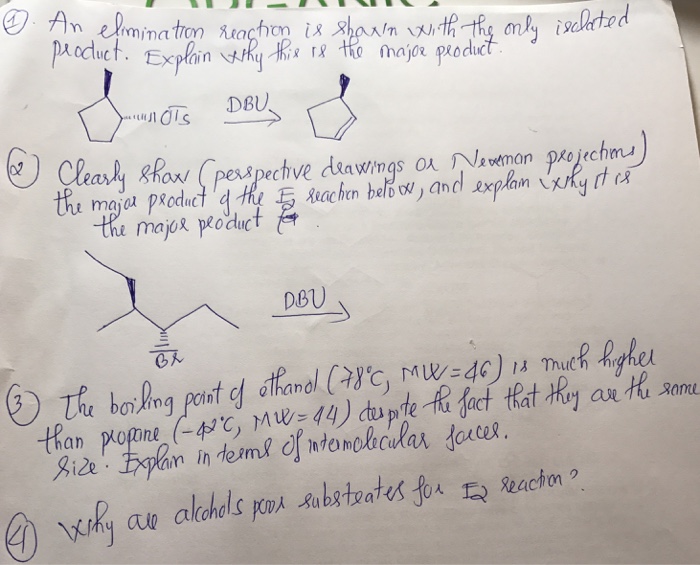 ① An elimination reaction is shown with the only isolated
product. Explain why this is the major product.
OTs
DBU
② Clearly show (perspective drawings or Newman projections)
the major product of the E2 reaction below, and explain why it is
the major product
Br
DBU
③ The boiling point of ethanol (78°C, MW=46) is much higher
than propane (-42°C, MW=44) despite the fact that they are the same
size. Explain in terms of intermolecular forces.
④ Why are alcohols poor substrates for E2 reaction?